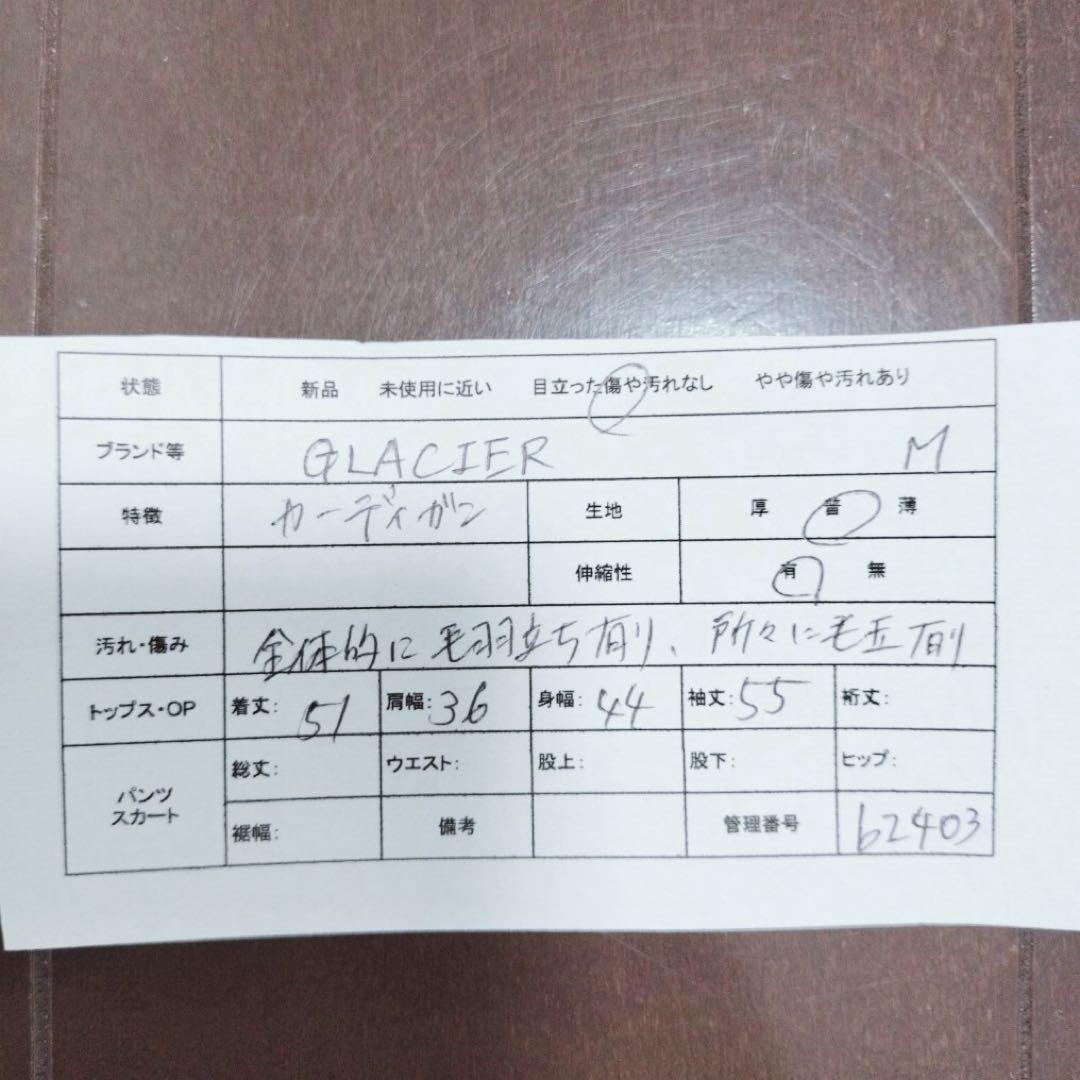 状態 新品 未使用に近い 目立った傷や汚れなし やや傷や汚れあり
ブランド等 GLACIER M
特徴 カーディガン 生地 厚 普 薄
伸縮性 有 無
汚れ・傷み 全体的に毛羽立ち有り、所々に毛玉有り
トップス・OP 着丈: 51 肩幅: 36 身幅: 44 袖丈: 55 裄丈:
パンツ スカート 総丈: ウエスト: 股上: 股下: ヒップ:
裾幅: 備考 管理番号 62403